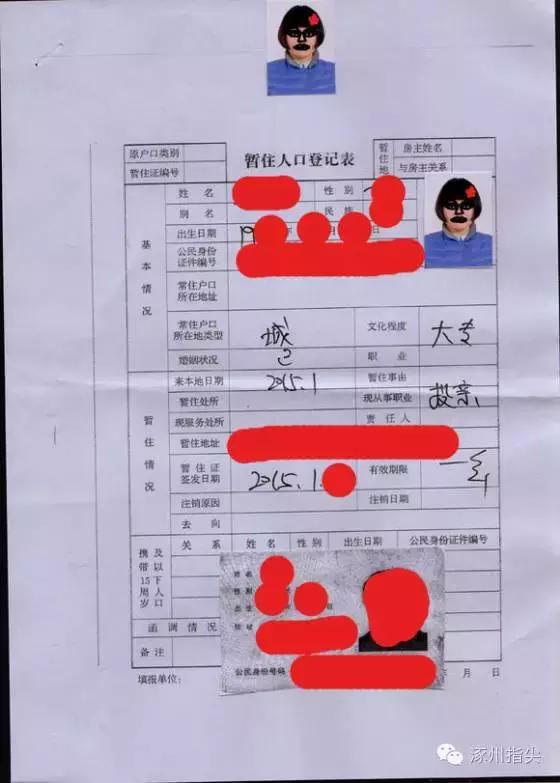 原户口类别
暂住人口登记表
暂住地 房主姓名
暂住证编号
与房主关系
姓名 性别
别名 民族
出生日期 19 年 月 日
基本情况
公民身份证件编号
常住户口所在地址
常住户口所在地类型 城 文化程度 大专
婚姻状况 已 职业
暂住情况
来本地日期 2015.1 暂住事由
暂住处所 现从事职业 投亲
现服务处所 责任人
暂住地址
暂住证签发日期 2015.1. 有效期限 一年
注销原因 注销日期
去向
携带及15周岁以下人口
关系 姓名 性别 出生日期 公民身份证件编号
姓名
性别
出生
住址
公民身份号码
函调情况
备注
填报单位: 年 月 日
涿州指尖